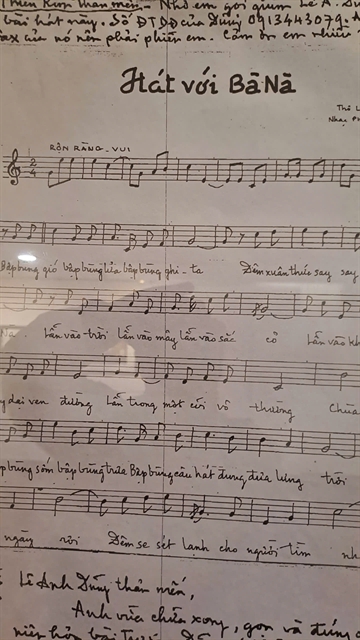 Thiên Kim thân mến, - Nhờ em gởi giùm Lê A. Dũ
bài hát này. Số ĐTDĐ của Dũng 0913443079.
fax của nó nên phải phiền em. Cám ơn em nhiều
Hát với BàNà
Thơ L
Nhạc Ph
RỘN RÀNG - VUI
2 4
Bập bùng gió bập bùng lửa bập bùng ghi - ta Đêm xuân thức say say
Lẩn vào trời lẩn vào mây lẩn vào sắc cỏ Lẩn vào kh
dại ven đường Lẩn trong một cõi vô thường Chùa
bập bùng sớm bập bùng trưa Bập bùng câu hát đung đưa lưng trời
ngày rồi Đêm se sét lạnh cho người tìm nh
Lê Anh Dũng thân mến,
Anh vừa chữa xong, gọn và đúng